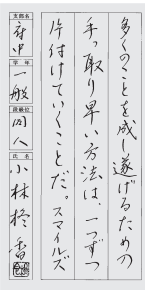 多くのことを成し遂げるための
手っ取り早い方法は、一つずつ
片付けていくことだ。スマイルズ
支部名
府中
学年
一般
段級位
同人
氏名
小林柊香